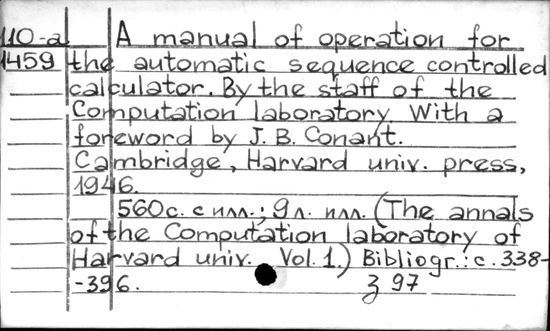 110-a A manual of operation for
1459 the automatic sequence controlled
calculator. By the staff of the
Computation laboratory. With a
foreword by J. B. Conant.
Cambridge, Harvard univ. press,
1946.
560с. с илл.; 9л. илл. (The annals
of the Computation laboratory of
Harvard univ. Vol. 1.) Bibliogr.: с. 338-
-396. з 97